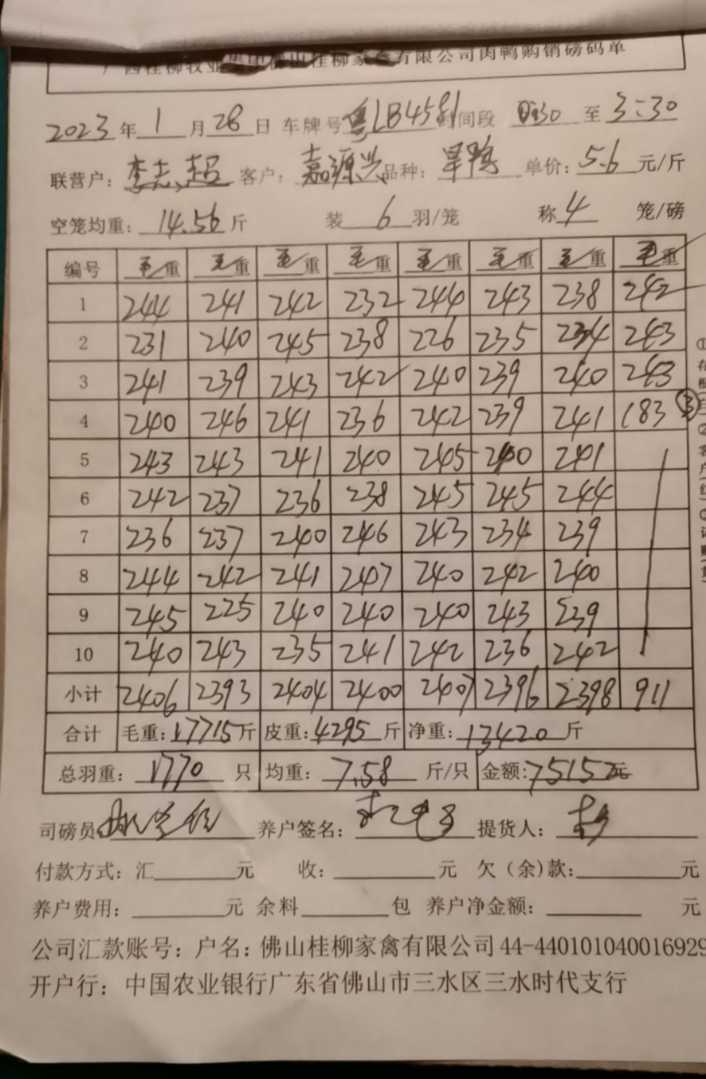 广西桂柳牧业 佛山桂柳家禽有限公司肉鸭购销磅码单
2023年1月28日 车牌号粤LB4581 时间段 至3:30
联营户:李志超 客户:嘉源兴 品种:旱鸭 单价:5.6元/斤
空笼均重:14.56斤 装6羽/笼 称4笼/磅
编号 毛重 毛重 毛重 毛重 毛重 毛重 毛重 毛重
1 244 241 242 232 244 243 238 242
2 231 240 245 238 226 235 234 243
3 241 239 243 242 240 239 240 243
4 240 246 241 236 242 239 241 183 ③
5 243 243 241 240 245 240 241
6 242 237 236 238 245 245 244
7 236 237 240 246 243 234 239
8 244 242 241 247 240 242 240
9 245 225 240 240 240 243 239
10 240 243 235 241 242 236 242
小计 2406 2393 2404 2400 2407 2396 2398 911
合计 毛重:17715斤 皮重:4295斤 净重:13420斤
总羽重:1770只 均重:7.58斤/只 金额:75152元
司磅员 养户签名: 提货人:
付款方式:汇 元 收: 元 欠(余)款: 元
养户费用: 元 余料 包 养户净金额: 元
公司汇款账号:户名:佛山桂柳家禽有限公司44-440101040016929
开户行:中国农业银行广东省佛山市三水区三水时代支行